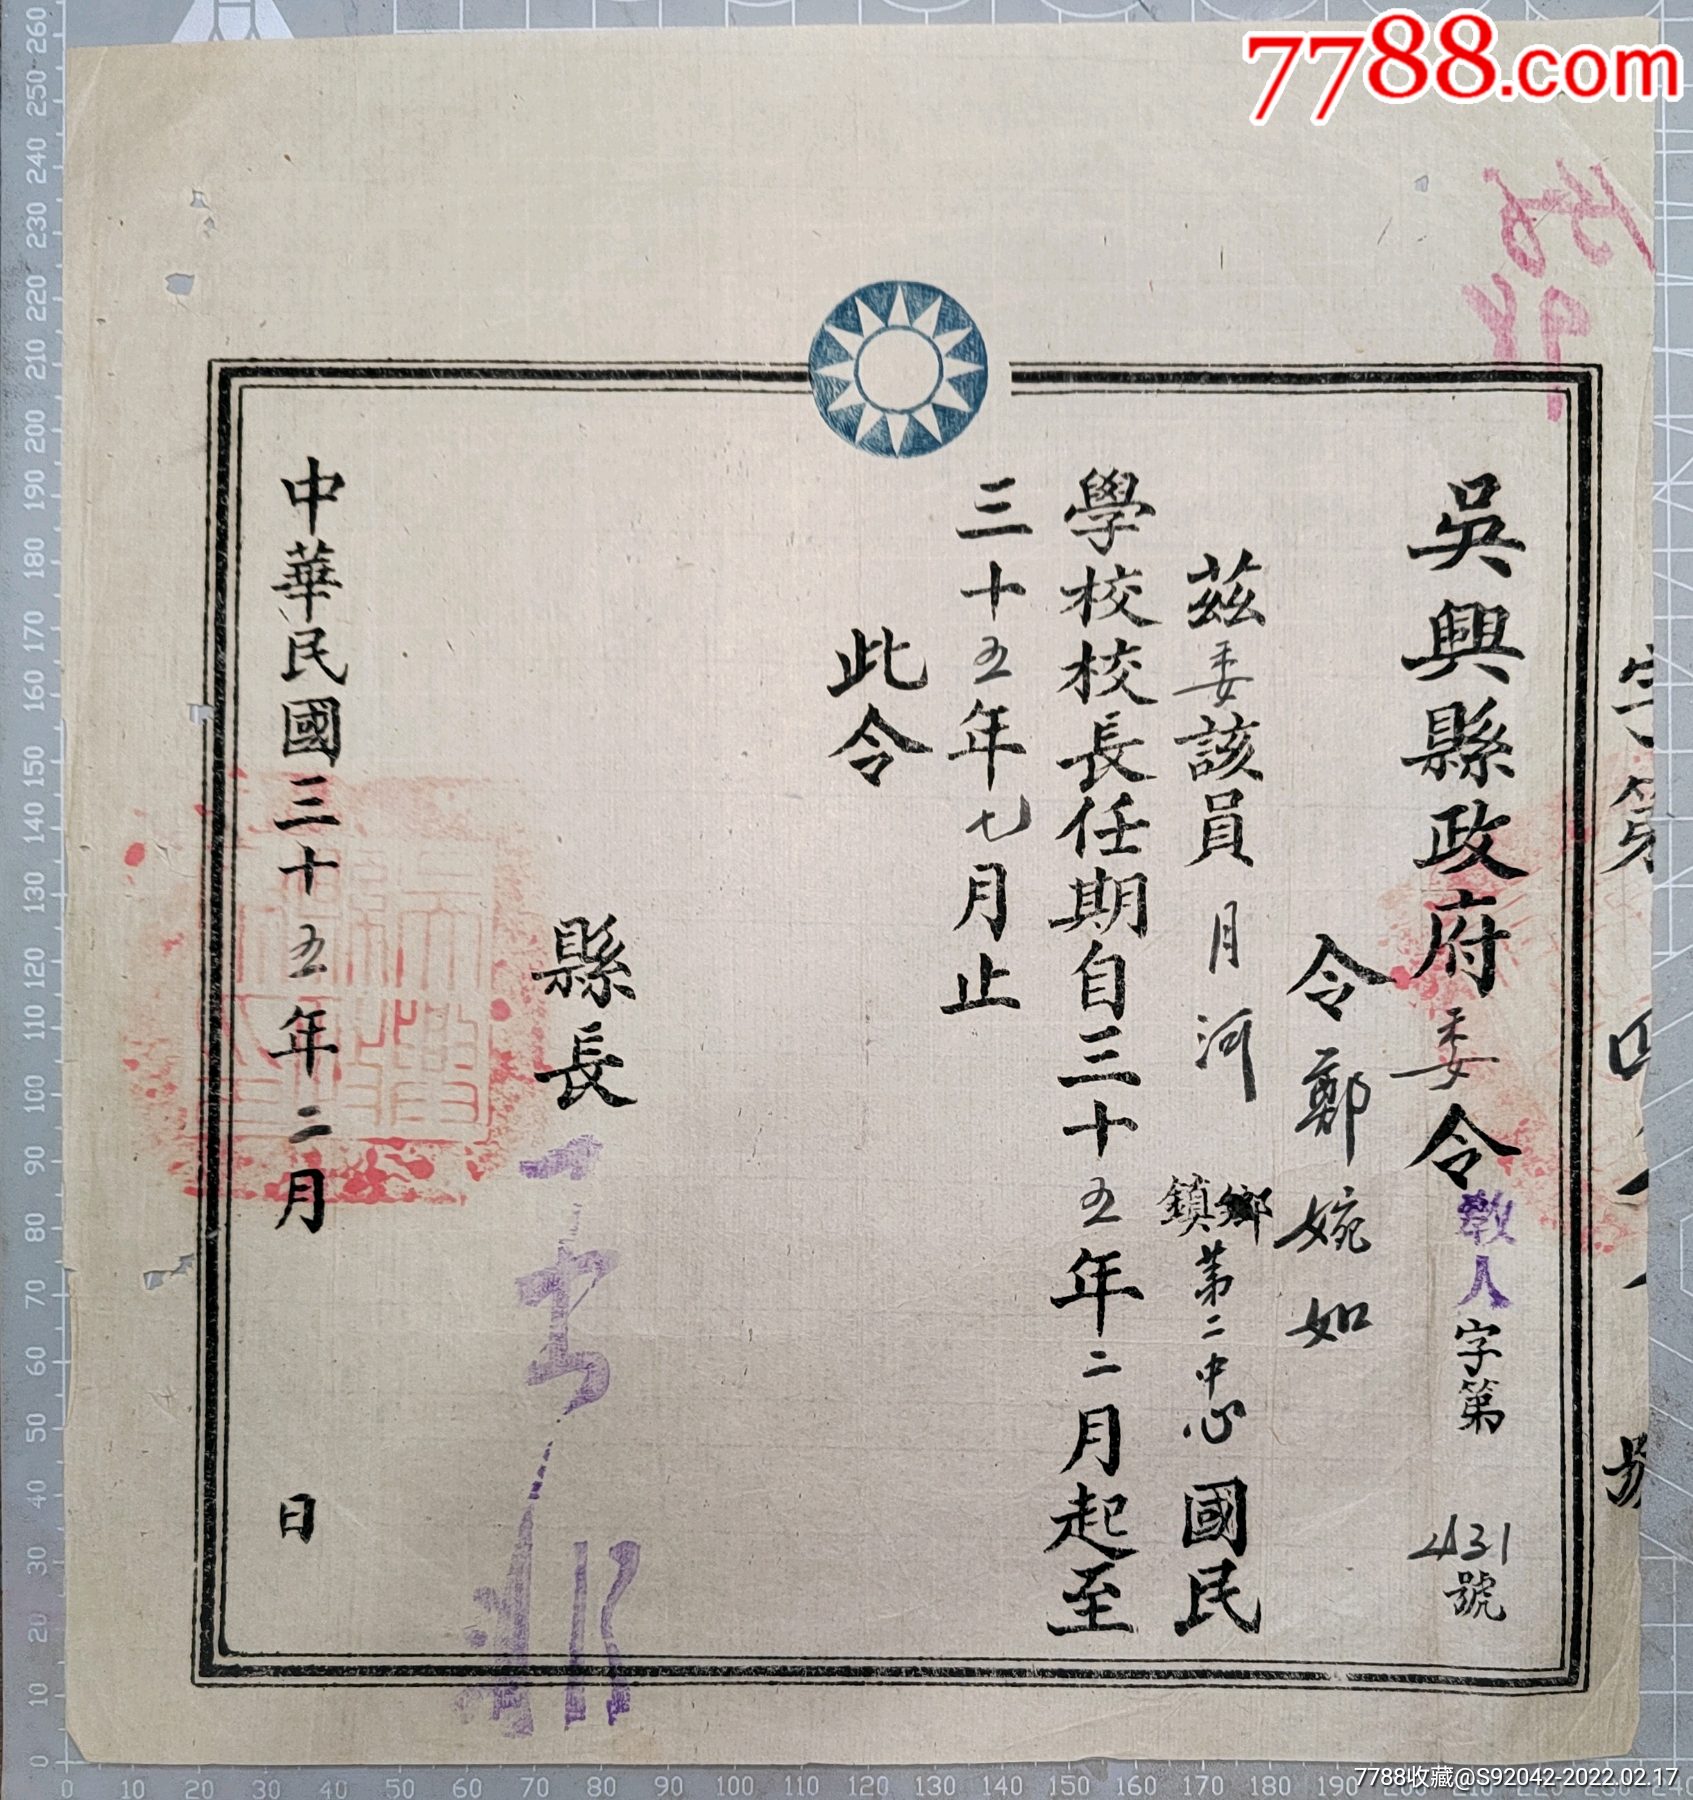 7788.com
字第
號
吳興縣政府委令教人字第431號
令鄭婉如
茲委該員月河鎮鄉第二中心國民
學校校長任期自三十五年二月起至
三十五年七月止
此令
縣長
中華民國三十五年二月 日
7788收藏@S92042-2022.02.17